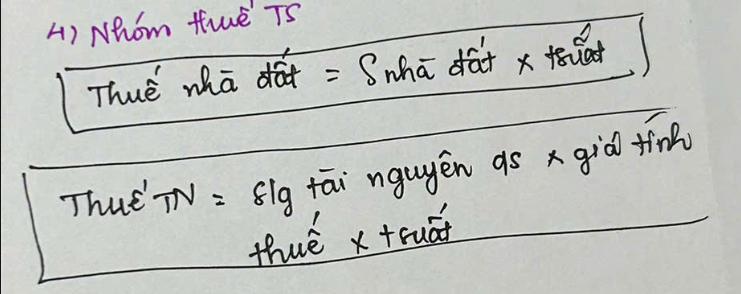 4) Nhóm thuế TS
Thuế nhà đất = S nhà đất x tsuất
Thuế TN = slg tài nguyên qs x giá tính
thuế x tsuất